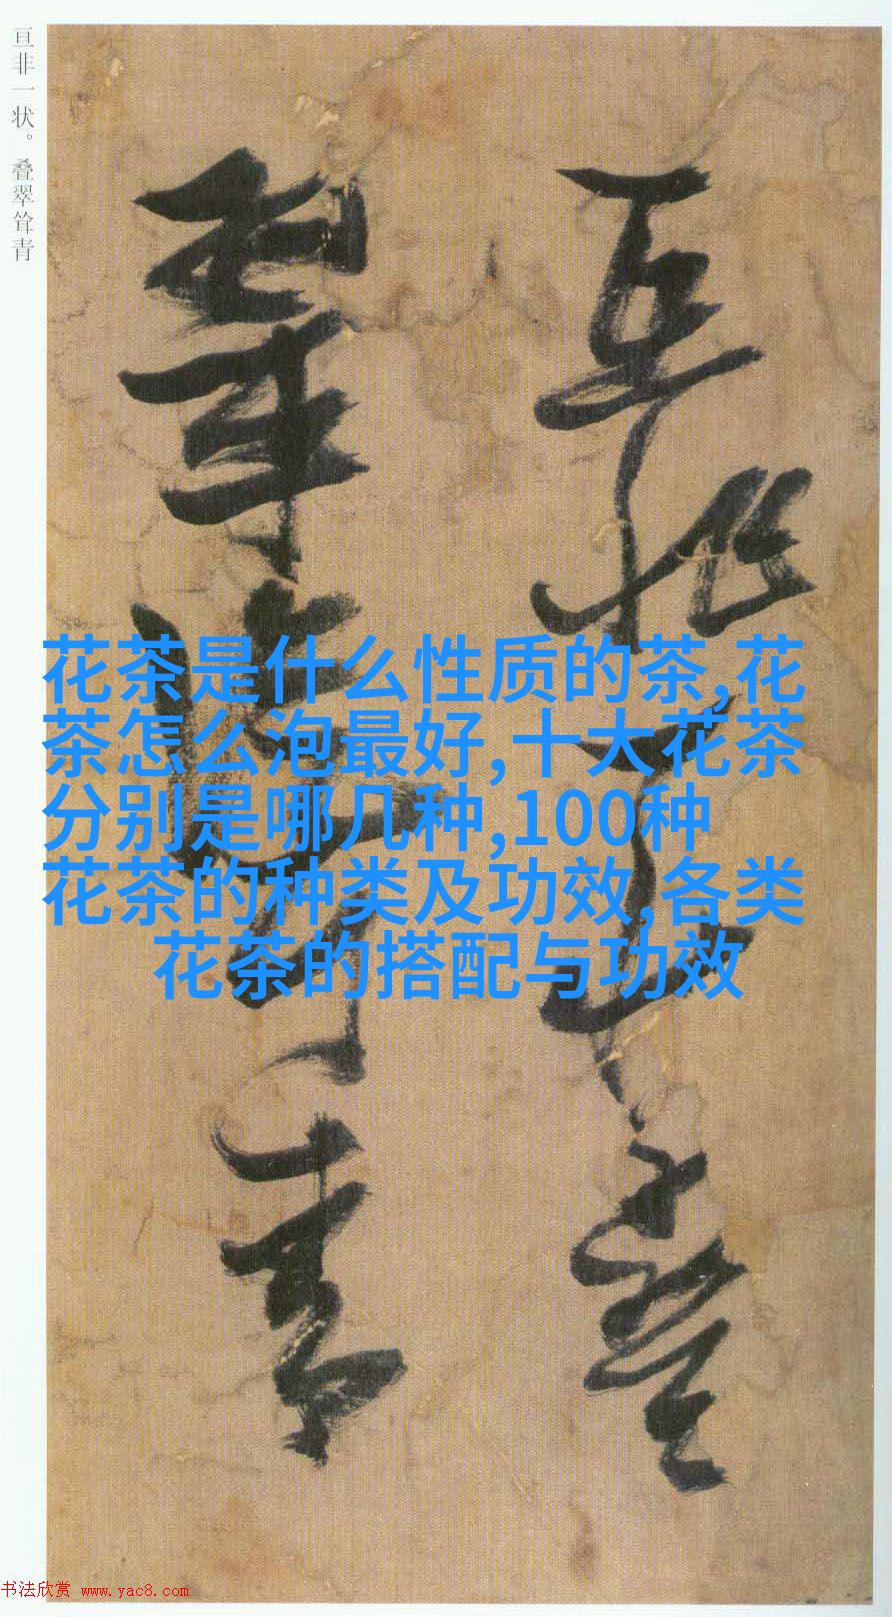 亘非一状。叠翠耸青
亘非一状叠
翠耸青
花茶是什么性质的茶,花
茶怎么泡最好,十大花茶
分别是哪几种,100种
花茶的种类及功效,各类
花茶的搭配与功效
书法欣赏 www.yac8.com